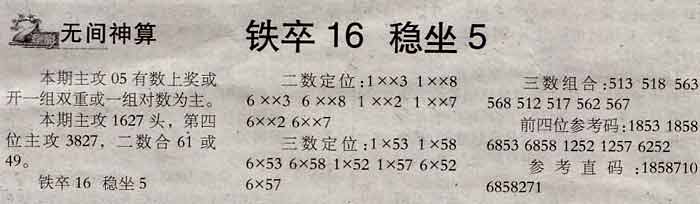 无间神算
铁卒 16 稳坐 5
本期主攻 05 有数上奖或
开一组双重或一组对数为主。
本期主攻 1627 头，第四
位主攻 3827，二数合 61 或
49。
铁卒 16 稳坐 5
二数定位:1××3 1××8
6××3 6××8 1××2 1××7
6××2 6××7
三数定位:1×53 1×58
6×53 6×58 1×52 1×57 6×52
6×57
三数组合:513 518 563
568 512 517 562 567
前四位参考码:1853 1858
6853 6858 1252 1257 6252
参考直码:1858710
6858271